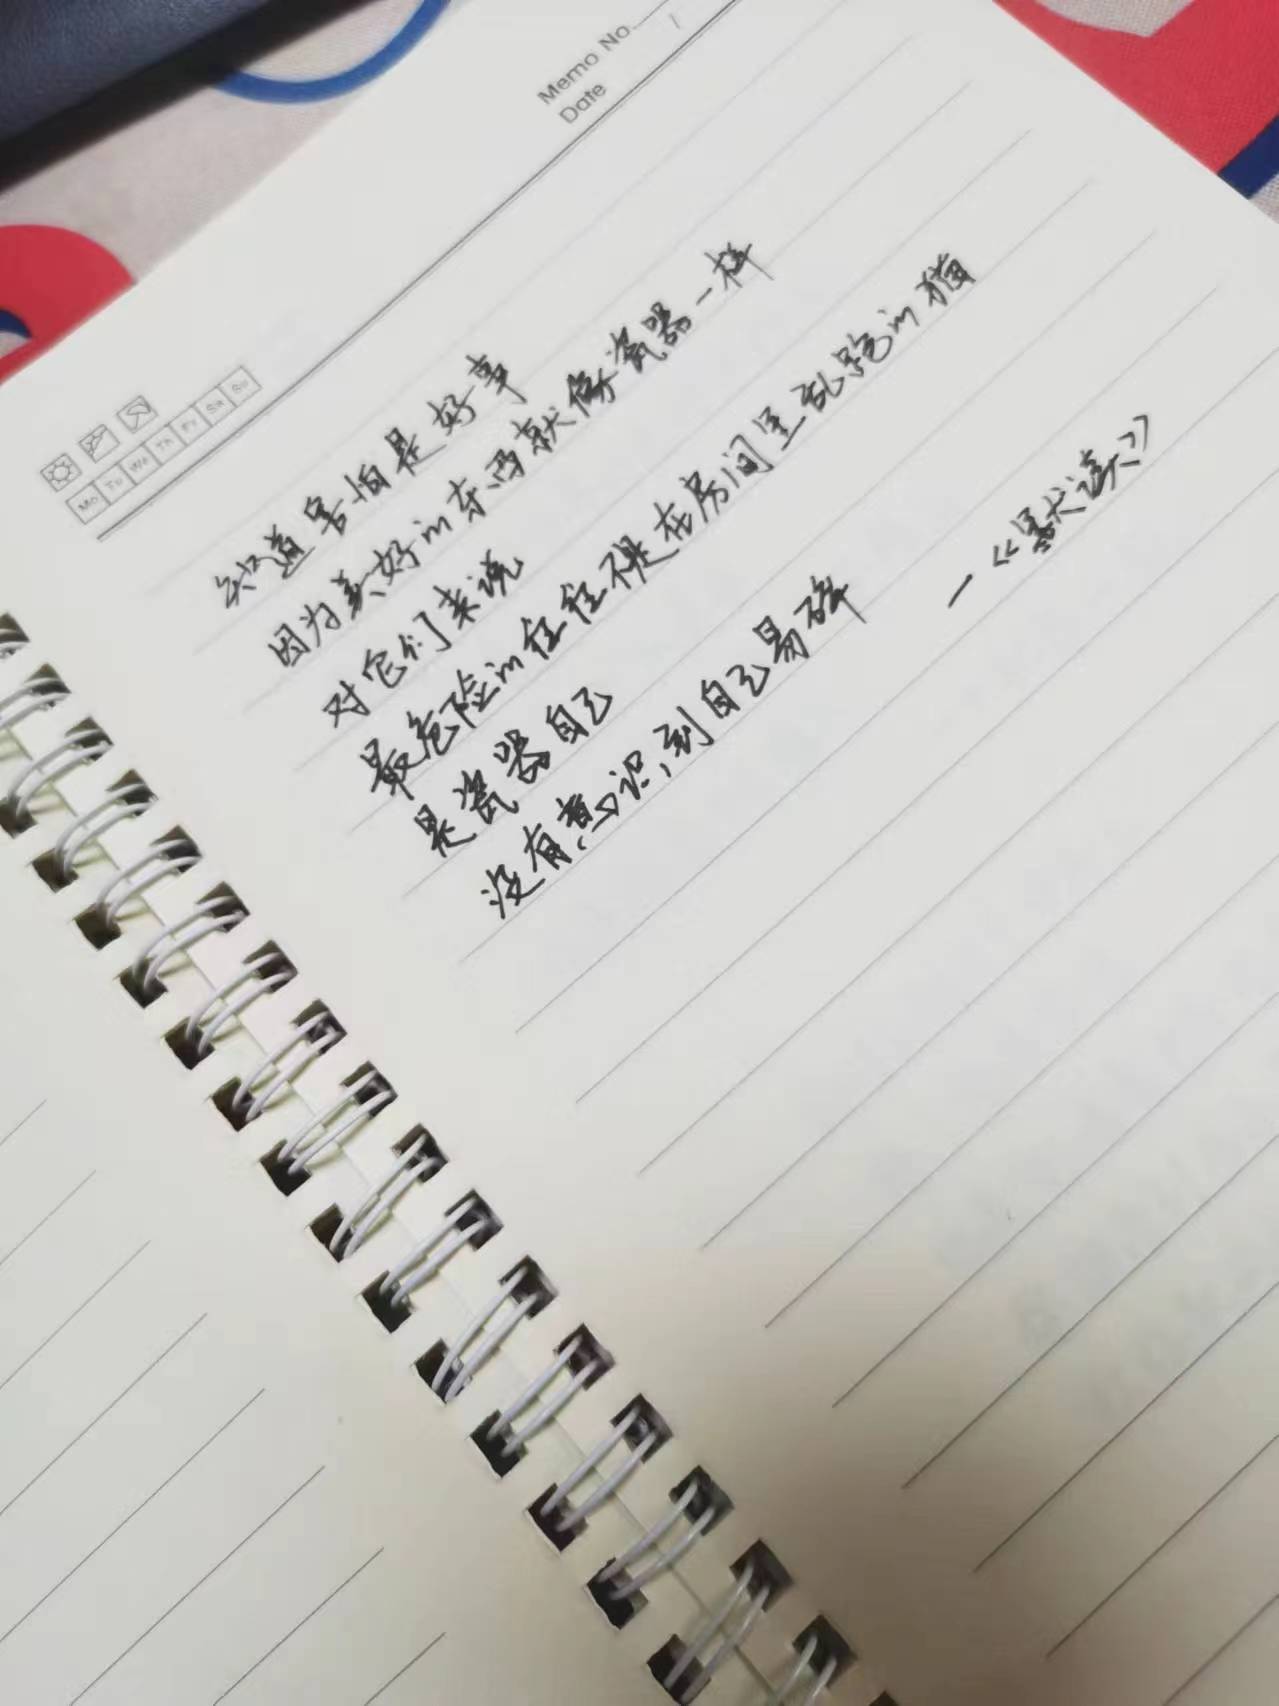 Memo No.
Date /
Mo Tu We Th Fr Sa Su
知道害怕是好事
因为美好的东西就像瓷器一样
对它们来说
最危险的往往不是在房间里乱跑的猫
是瓷器自己
没有意识到自己易碎
—《默读》